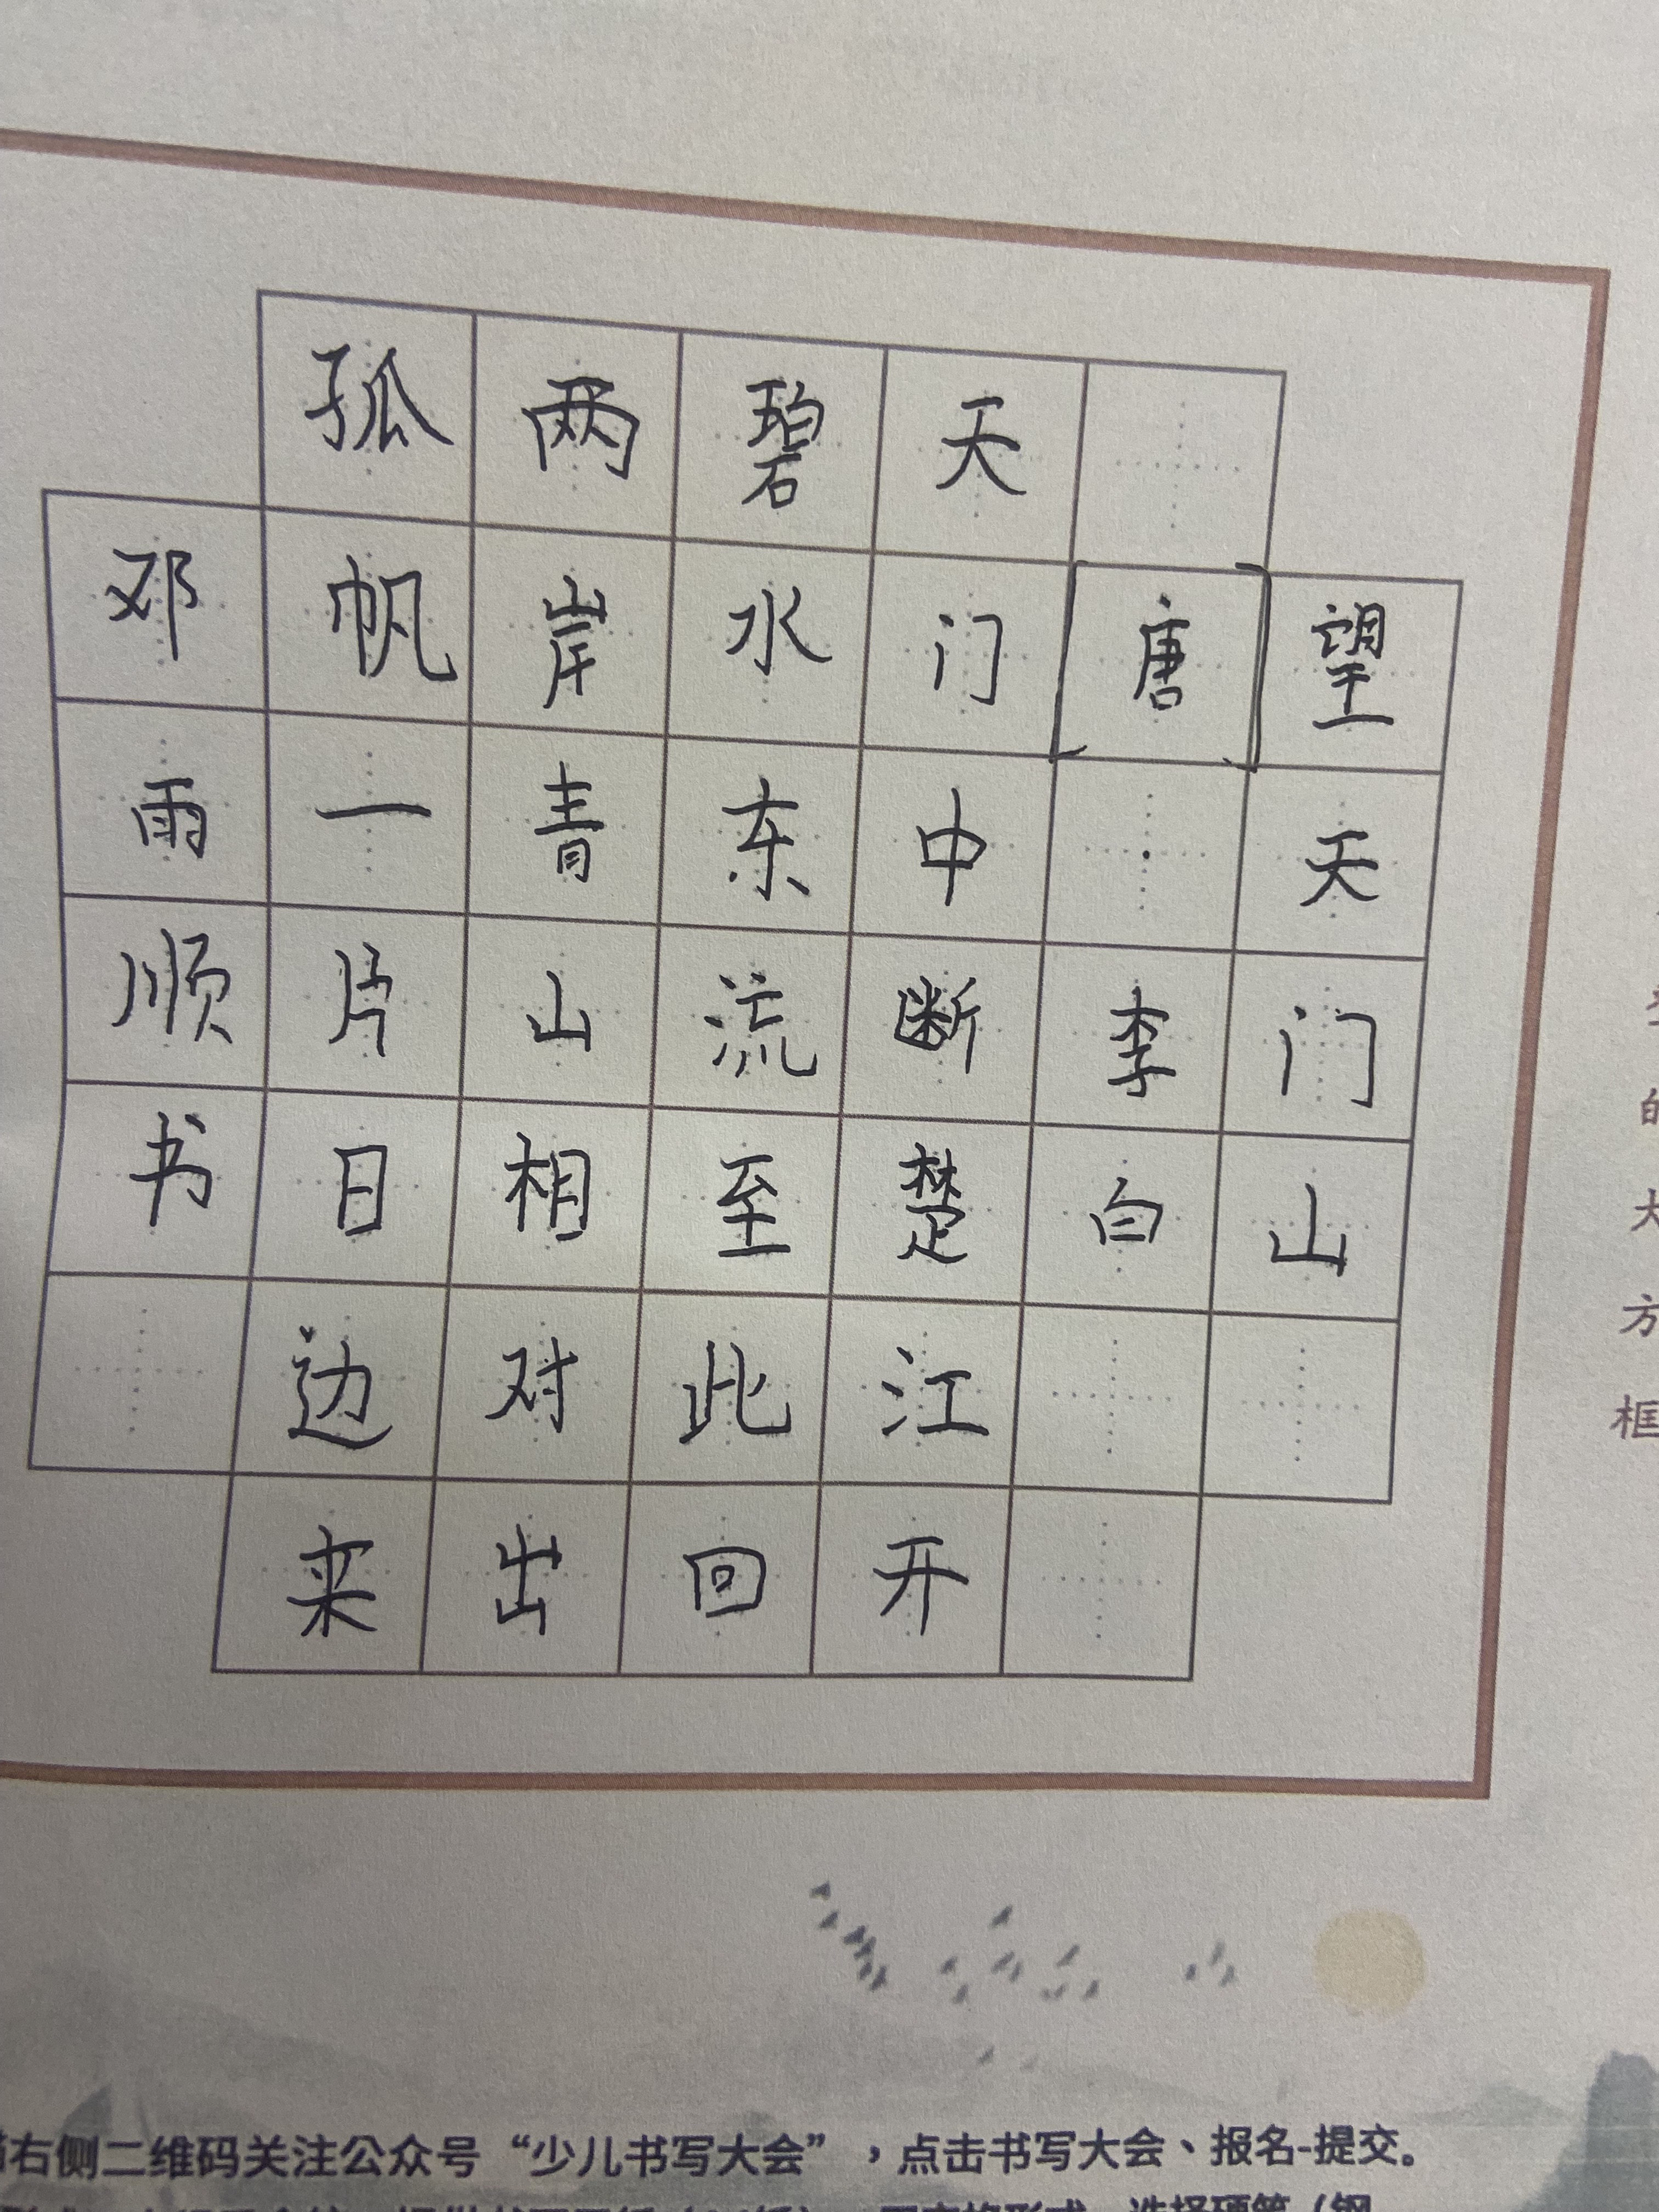 望天门山
[唐]李白
天门中断楚江开
碧水东流至此回
两岸青山相对出
孤帆一片日边来
邓雨顺书
的
大
方
框
右侧二维码关注公众号“少儿书写大会”,点击书写大会、报名-提交。